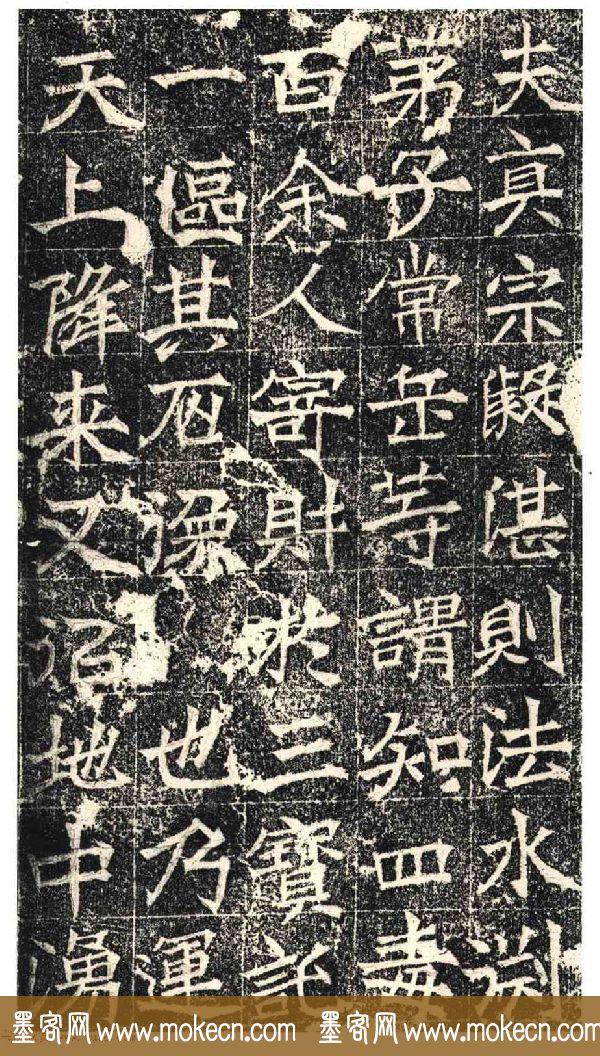 夫真宗凝湛則法水渊
弟子常岳等謂知四毒
百余人寄財於三寶託
一區其石也乃運
天上降来又地中湧
墨客网 www.mokecn.com 墨客网 www.mokecn.com